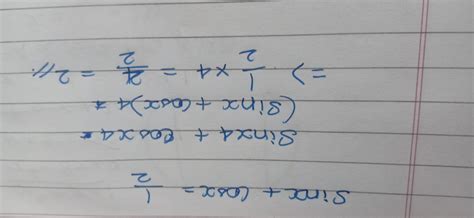 Sinx + Cosx = 1/2
Sinx4 + Cosx4
(Sinx + Cosx)4
=> 1/2 × 4 = 4/2 = 2//